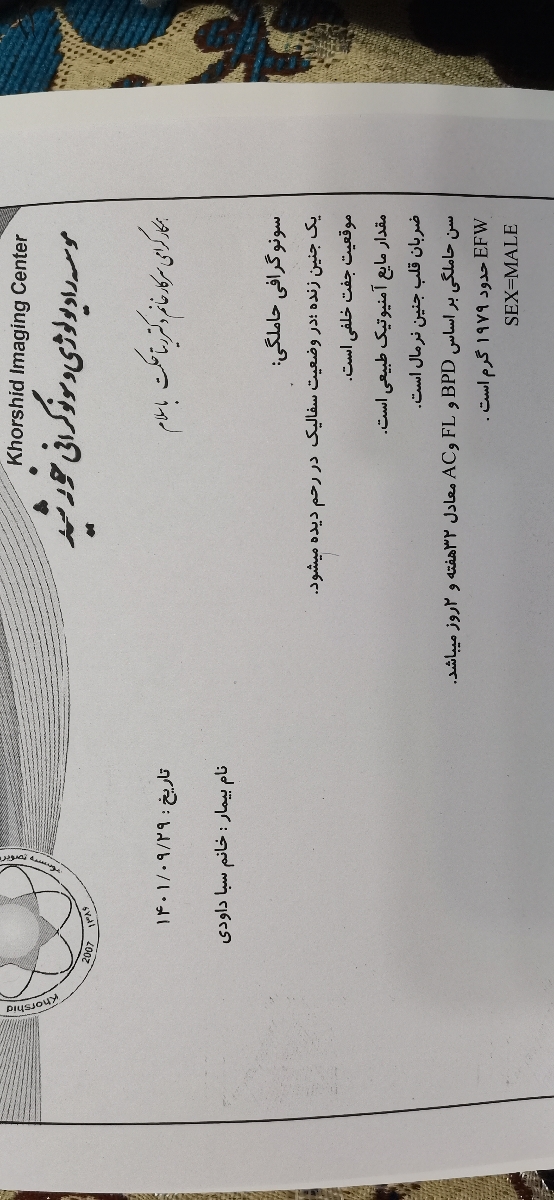 موسسه رادیولوژی و سونوگرافی خورشید
Khorshid Imaging Center
موسسه تصویر
۱۳۸۶
2007
Khorshid
تاریخ : ۱۴۰۱/۰۹/۲۹
همکار گرامی سرکار خانم دکتر حکمت با سلام
نام بیمار : خانم سبا داودی
سونوگرافی حاملگی:
یک جنین زنده ؛در وضعیت سفالیک در رحم دیده میشود.
موقعیت جفت خلفی است.
مقدار مایع آمنیوتیک طبیعی است.
ضربان قلب جنین نرمال است.
سن حاملگی بر اساس BPD و FL و AC معادل ۳۲هفته و ۲روز میباشد.
EFW حدود ۱۹۷۹ گرم است .
SEX=MALE